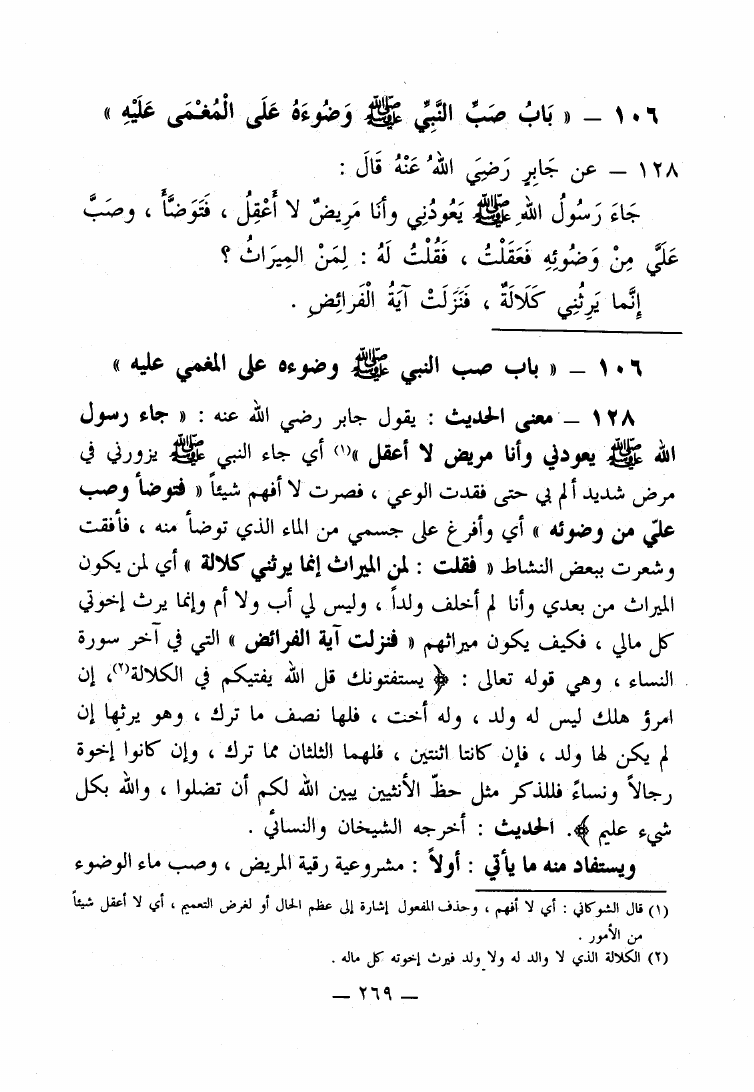 ١٠٦ – « بَابُ صَبِّ النَّبِيِّ ﷺ وَضُوءَهُ عَلَى الْمُغْمَى عَلَيْهِ »
١٢٨ – عن جَابِرٍ رَضِيَ اللهُ عَنْهُ قَالَ :
جَاءَ رَسُولُ اللهِ ﷺ يَعُودُنِي وأَنَا مَرِيضٌ لا أَعْقِلُ ، فَتَوَضَّأَ ، وصَبَّ
عَلَيَّ مِنْ وَضُوئِهِ فَعَقَلْتُ ، فَقُلْتُ لَهُ : لِمَنْ المِيرَاثُ ؟
إِنَّما يَرِثُنِي كَلَالَةٌ ، فَنَزَلَتْ آيَةُ الْفَرائِضِ .
١٠٦ – « باب صب النبي ﷺ وضوءه على المغمي عليه »
١٢٨ – معنى الحديث : يقول جابر رضي الله عنه : « جاء رسول
الله ﷺ يعودني وأنا مريض لا أعقل »(١) أي جاء النبي ﷺ يزورني في
مرض شديد ألم بي حتى فقدت الوعي ، فصرت لا أفهم شيئاً « فتوضأ وصب
عليّ من وضوئه » أي وأفرغ على جسمي من الماء الذي توضأ منه ، فأفقت
وشعرت ببعض النشاط « فقلت : لمن الميراث إنما يرثني كلالة » أي لمن يكون
الميراث من بعدي وأنا لم أخلف ولداً ، وليس لي أب ولا أم وإنما يرث إخوتي
كل مالي ، فكيف يكون ميراثهم « فنزلت آية الفرائض » التي في آخر سورة
النساء ، وهي قوله تعالى : ﴿ يستفتونك قل الله يفتيكم في الكلالة(٢)، إن
امرؤ هلك ليس له ولد ، وله أخت ، فلها نصف ما ترك ، وهو يرثها إن
لم يكن لها ولد ، فإن كانتا اثنتين ، فلهما الثلثان مما ترك ، وإن كانوا إخوة
رجالاً ونساءً فللذكر مثل حظّ الأنثيين يبين الله لكم أن تضلوا ، والله بكل
شيء عليم ﴾. الحديث : أخرجه الشيخان والنسائي .
ويستفاد منه ما يأتي : أولاً : مشروعية رقية المريض ، وصب ماء الوضوء
(١) قال الشوكاني : أي لا أفهم ، وحذف المفعول إشارة إلى عظم الحال أو لغرض التعميم ، أي لا أعقل شيئاً
من الأمور .
(٢) الكلالة الذي لا والد له ولا ولد فيرث إخوته كل ماله .
– ٢٦٩ –